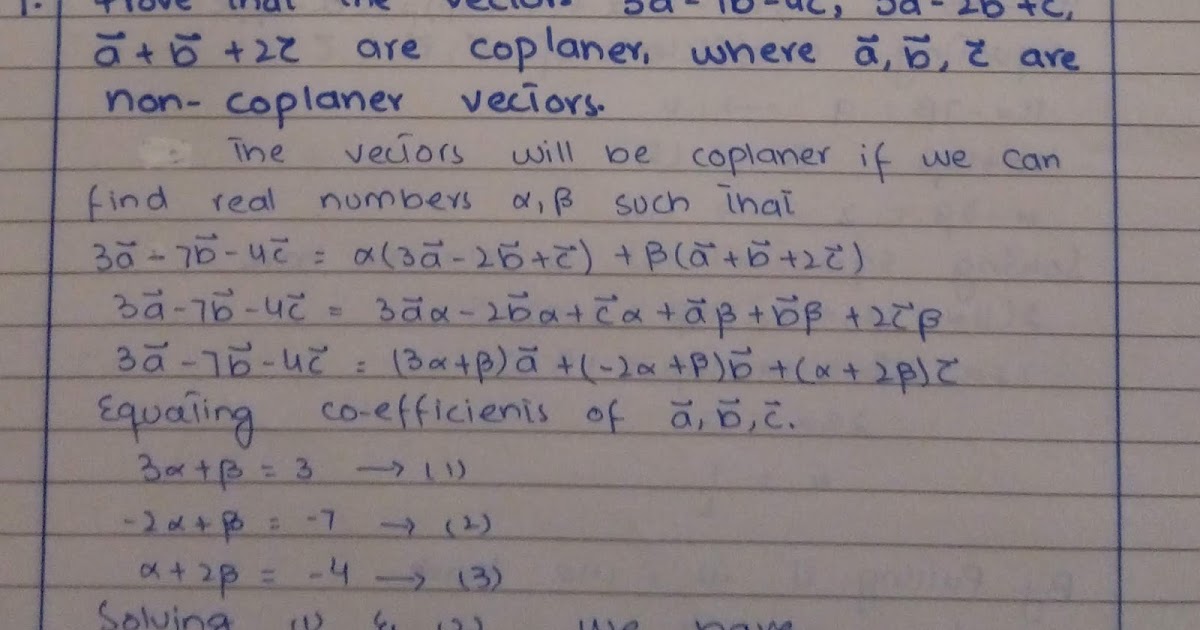 1. Prove that the vectors 3a⃗ - 7b⃗ - 4c⃗, 3a⃗ - 2b⃗ + c⃗,
a⃗ + b⃗ + 2c⃗ are coplaner, where a⃗, b⃗, c⃗ are
non-coplaner vectors.
The vectors will be coplaner if we can
find real numbers α, β such that
3a⃗ - 7b⃗ - 4c⃗ = α(3a⃗ - 2b⃗ + c⃗) + β(a⃗ + b⃗ + 2c⃗)
3a⃗ - 7b⃗ - 4c⃗ = 3a⃗α - 2b⃗α + c⃗α + a⃗β + b⃗β + 2c⃗β
3a⃗ - 7b⃗ - 4c⃗ = (3α + β)a⃗ + (-2α + β)b⃗ + (α + 2β)c⃗
Equating co-efficients of a⃗, b⃗, c⃗.
3α + β = 3 → (1)
-2α + β = -7 → (2)
α + 2β = -4 → (3)
Solving (1) & (2) we have